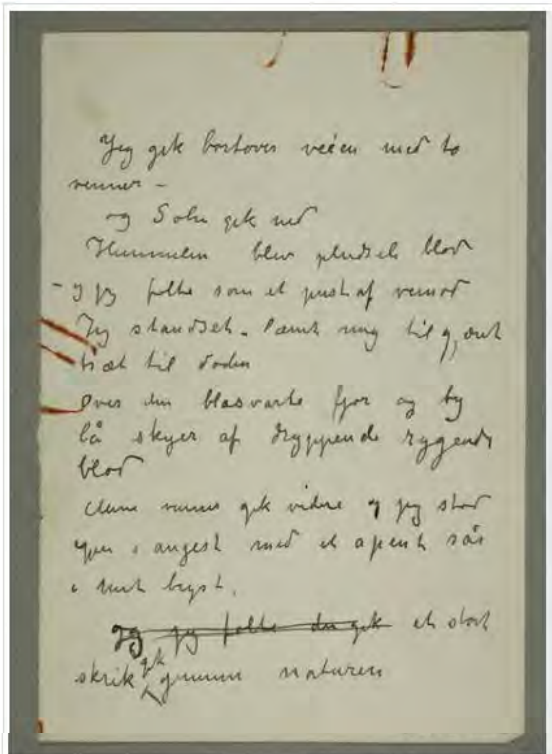 Jeg gik bortover veien med to
venner –
og Solen gik ned
Himmelen blev pludseli blod
– og jeg følte som et pust af vemod
Jeg standset – lænte mig til gjerdet
træt til døden
Over den blåsvarte fjor og by
lå skyer af dryppende rygende
blod
Mine venner gik videre og jeg stod
igjen i angest med et åpent sår
i mit bryst.
Jeg jeg følte der gik et stort
skrik gik gjennem naturen